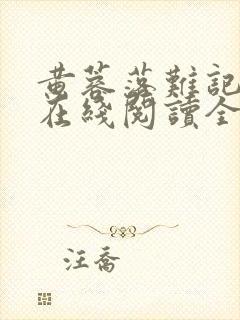 黄蓉落難記
在綫閱讀全
汪喬